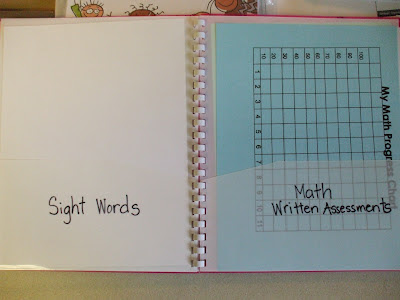 Sight Words
My Math Progress Chart
10 20 30 40 50 60 70 80 90 100
1 2 3 4 5 6 7 8 9 10 11
Math
Written Assessments